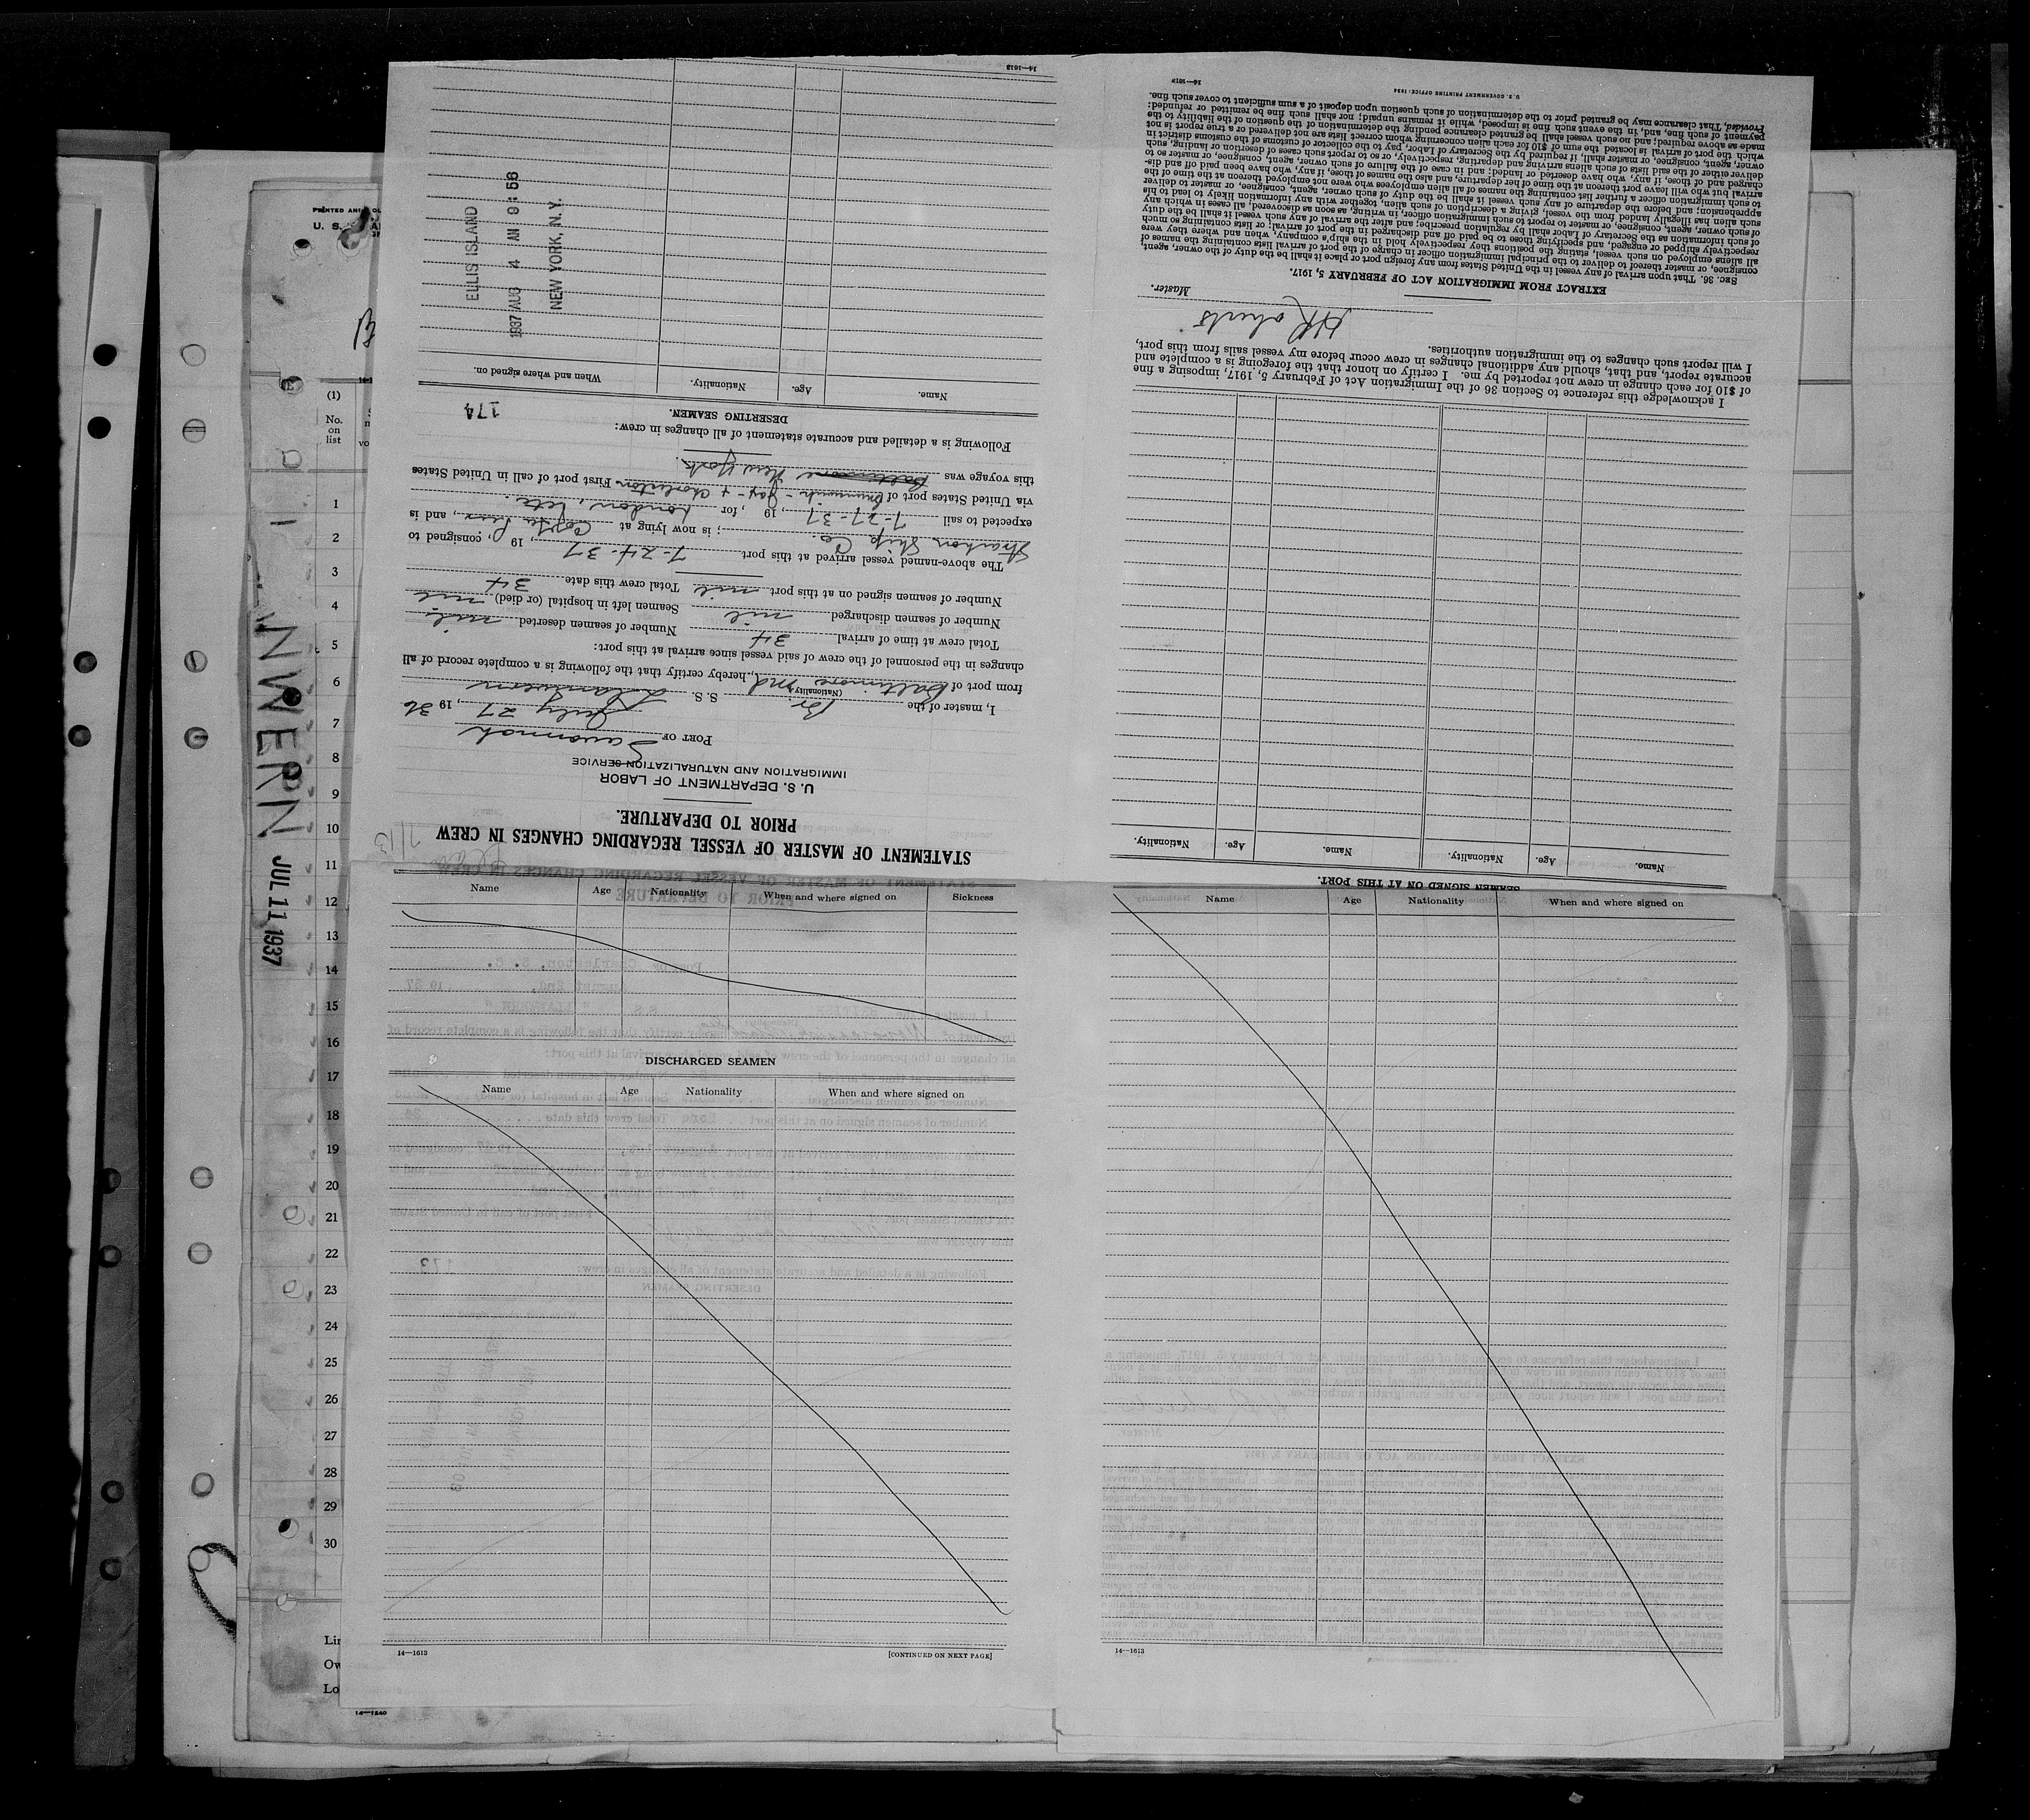 STATEMENT OF MASTER OF VESSEL REGARDING CHANGES IN CREW
PRIOR TO DEPARTURE.
U. S. DEPARTMENT OF LABOR
IMMIGRATION AND NATURALIZATION SERVICE
PORT OF Savannah
July 27, 19 36
I, master of the Br S. S. Llanwern
(Nationality)
from port of Baltimore Md, hereby certify that the following is a complete record of all
changes in the personnel of the crew of said vessel since arrival at this port:
Total crew at time of arrival 34 Number of seamen deserted nil
Number of seamen discharged nil Seamen left in hospital (or died) nil
Number of seamen signed on at this port nil Total crew this date 34
The above-named vessel arrived at this port 7-24-37, 19 , consigned to
Strachan Ship Co. ; is now lying at , and is
expected to sail 7-27-37, 19 , for London, etc.
via United States port of Brunswick - Jax - + Charleston First port of call in United States
this voyage was Baltimore New York.
Following is a detailed and accurate statement of all changes in crew:
174
DESERTING SEAMEN.
Name. Age. Nationality. When and where signed on.
ELLIS ISLAND
1937 AUG 4 AM 9:56
NEW YORK, N. Y.
14—1613
SEAMEN SIGNED ON AT THIS PORT.
Name. Age. Nationality. Name. Age. Nationality.
I acknowledge this reference to Section 36 of the Immigration Act of February 5, 1917, imposing a fine
of $10 for each change in crew not reported by me. I certify on honor that the foregoing is a complete and
accurate report, and that, should any additional changes in crew occur before my vessel sails from this port,
I will report such changes to the immigration authorities.
Roberts
Master.
EXTRACT FROM IMMIGRATION ACT OF FEBRUARY 5, 1917.
SEC. 36. That upon arrival of any vessel in the United States from any foreign port or place it shall be the duty of the owner, agent,
consignee, or master thereof to deliver to the principal immigration officer in charge of the port of arrival lists containing the names of
all aliens employed on such vessel, stating the positions they respectively hold in the ship's company, when and where they were
respectively shipped or engaged, and specifying those to be paid off and discharged in the port of arrival; or lists containing so much
of such information as the Secretary of Labor shall by regulation prescribe; and after the arrival of any such vessel it shall be the duty
of such owner, agent, consignee, or master to report to such immigration officer, in writing, as soon as discovered, all cases in which any
such alien has illegally landed from the vessel, giving a description of such alien, together with any information likely to lead to his
apprehension; and before the departure of any such vessel it shall be the duty of such owner, agent, consignee, or master to deliver
to such immigration officer a further list containing the names of all alien employees who were not employed thereon at the time of the
arrival but who will leave port thereon at the time of her departure, and also the names of those, if any, who have been paid off and dis-
charged and of those, if any, who have deserted or landed; and in case of the failure of such owner, agent, consignee, or master so to
deliver either of the said lists of such aliens arriving and departing, respectively, or so to report such cases of desertion or landing, such
owner, agent, consignee, or master shall, if required by the Secretary of Labor, pay to the collector of customs of the customs district in
which the port of arrival is located the sum of $10 for each alien concerning whom correct lists are not delivered or a true report is not
made as above required; and no such vessel shall be granted clearance pending the determination of the question of the liability to the
payment of such fine, and, in the event such fine is imposed, while it remains unpaid; nor shall such fine be remitted or refunded:
Provided, That clearance may be granted prior to the determination of such question upon deposit of a sum sufficient to cover such fine.
U. S. GOVERNMENT PRINTING OFFICE: 1934
14—1613
Name Age Nationality When and where signed on Sickness
DISCHARGED SEAMEN
Name Age Nationality When and where signed on
14—1613
[CONTINUED ON NEXT PAGE]
Name Age Nationality When and where signed on
14—1613
U. S.
(1)
No.
on
list
1
2
3
4
5
6
7
8
9
10
11
12
13
14
15
16
17
18
19
20
21
22
23
24
25
26
27
28
29
30
14—1540
NWERN JUL 11 1937